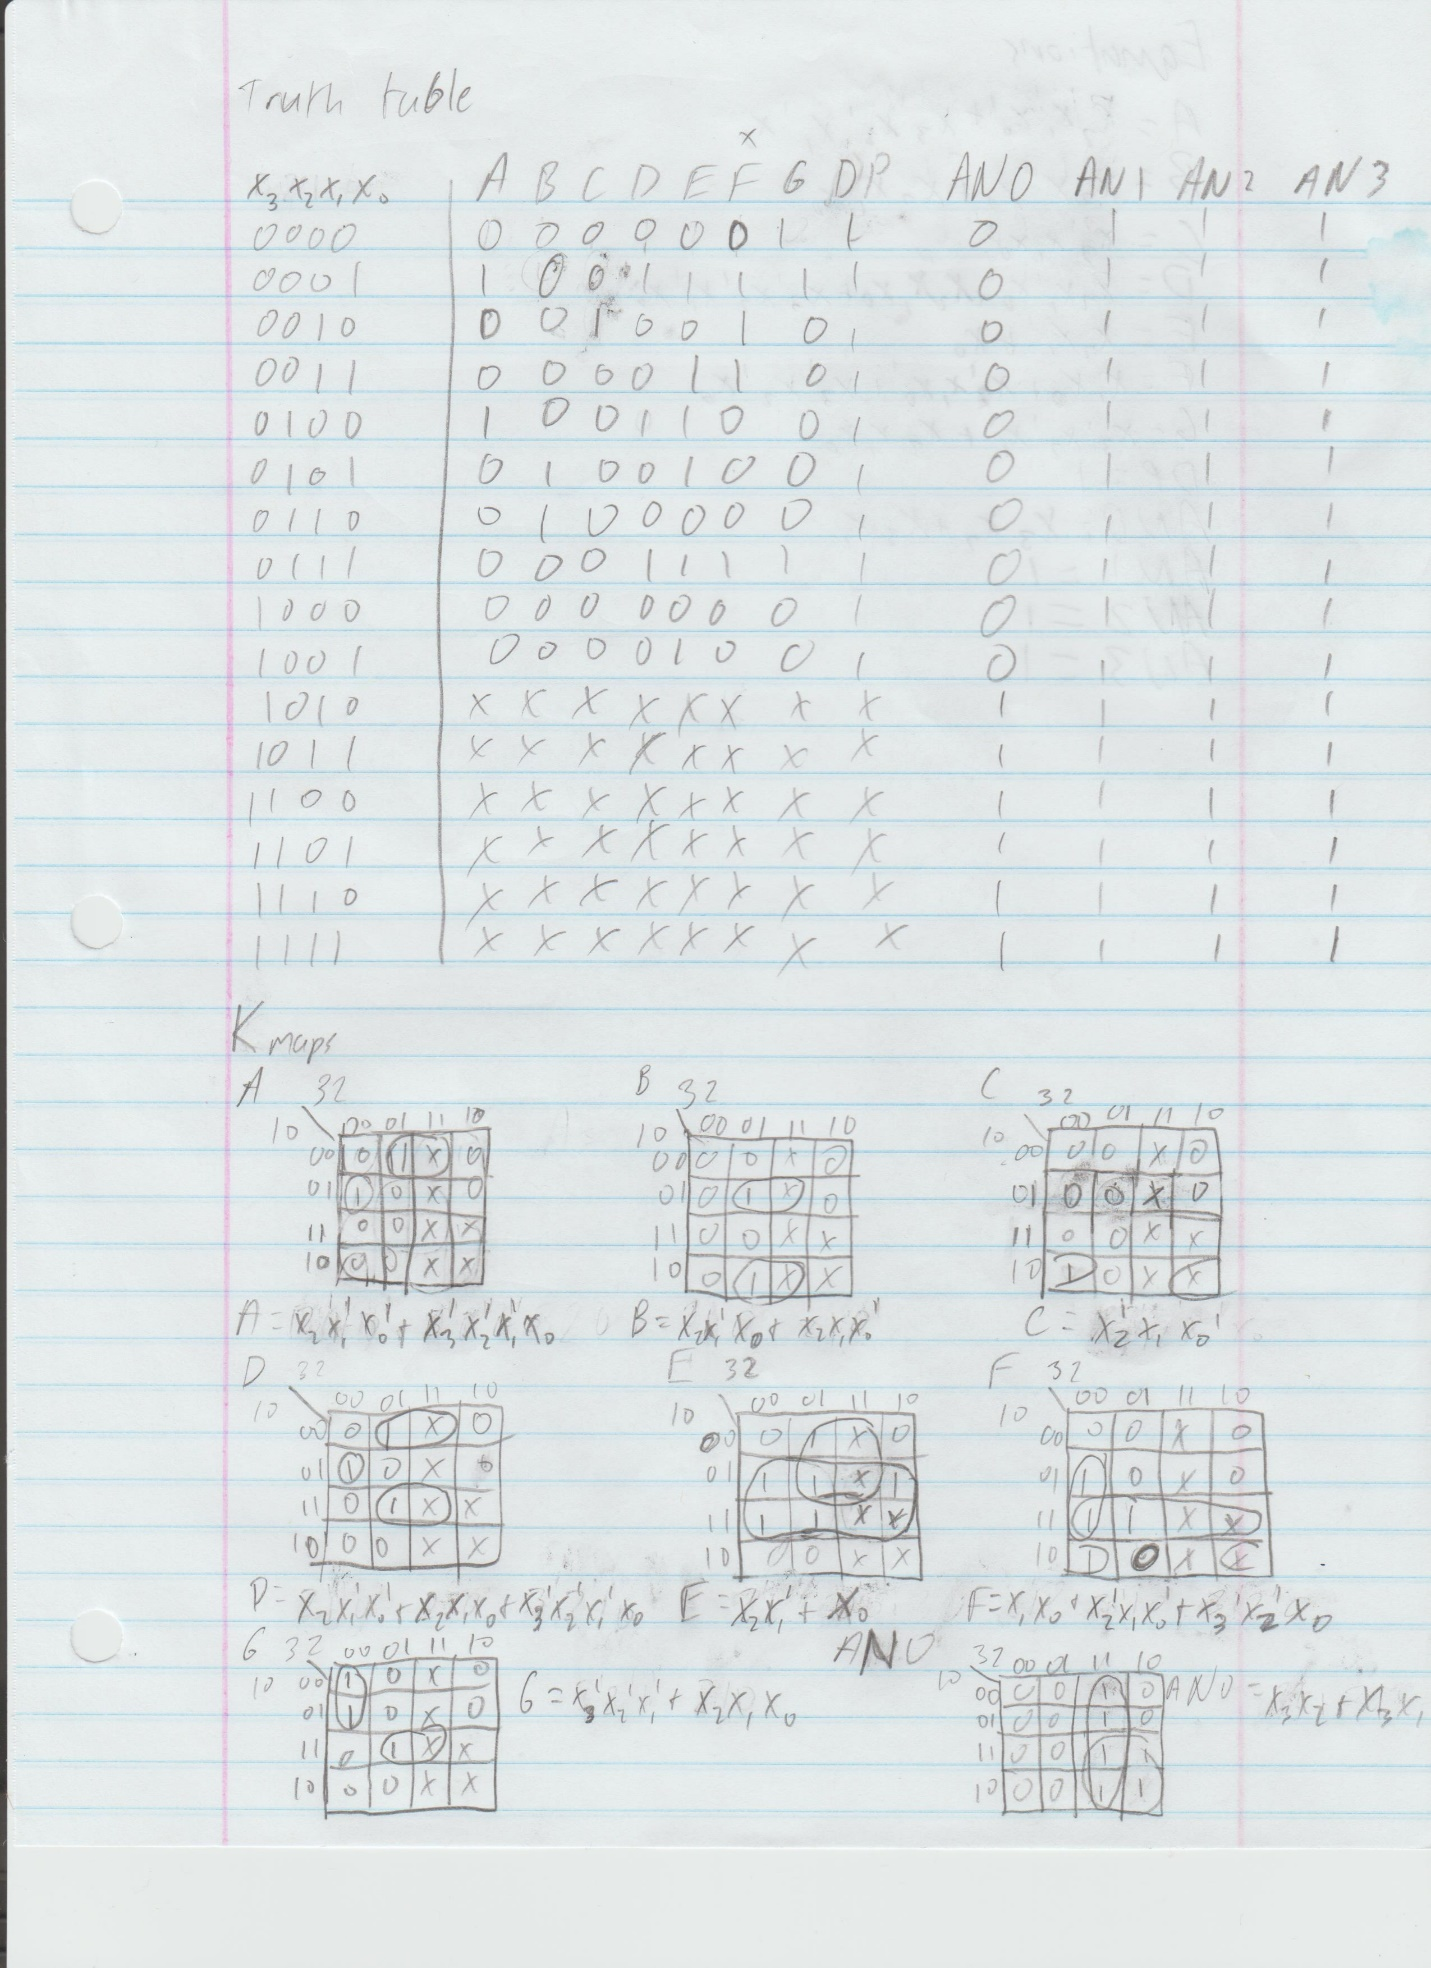 Truth table
x
x₃ x₂ x₁ x₀ A B C D E F G DP AN0 AN1 AN2 AN3
0000 0 0 0 0 0 0 1 1 0 1 1 1
0001 1 0 0 1 1 1 1 1 0 1 1 1
0010 0 0 1 0 0 1 0 1 0 1 1 1
0011 0 0 0 0 1 1 0 1 0 1 1 1
0100 1 0 0 1 1 0 0 1 0 1 1 1
0101 0 1 0 0 1 0 0 1 0 1 1 1
0110 0 1 0 0 0 0 0 1 0 1 1 1
0111 0 0 0 1 1 1 1 1 0 1 1 1
1000 0 0 0 0 0 0 0 1 0 1 1 1
1001 0 0 0 0 1 0 0 1 0 1 1 1
1010 x x x x x x x x 1 1 1 1
1011 x x x x x x x x 1 1 1 1
1100 x x x x x x x x 1 1 1 1
1101 x x x x x x x x 1 1 1 1
1110 x x x x x x x x 1 1 1 1
1111 x x x x x x x x 1 1 1 1
K maps
A 32
10 00 01 11 10
00 0 1 x 0
01 1 0 x 0
11 0 0 x x
10 0 0 x x
A = x₂x₁'x₀' + x₃'x₂'x₁'x₀
B 32
10 00 01 11 10
00 0 0 x 0
01 0 1 x 0
11 0 0 x x
10 0 1 x x
B = x₂x₁'x₀ + x₂x₁x₀'
C 32
10 00 01 11 10
00 0 0 x 0
01 0 0 x 0
11 0 0 x x
10 1 0 x x
C = x₂'x₁x₀'
D 32
10 00 01 11 10
00 0 1 x 0
01 1 0 x 0
11 0 1 x x
10 0 0 x x
D = x₂x₁'x₀' + x₂x₁x₀ + x₃'x₂'x₁'x₀
E 32
10 00 01 11 10
00 0 1 x 0
01 1 1 x 1
11 1 1 x x
10 0 0 x x
E = x₂x₁' + x₀
F 32
10 00 01 11 10
00 0 0 x 0
01 1 0 x 0
11 1 1 x x
10 1 0 x x
F = x₁x₀ + x₂'x₁x₀' + x₃'x₂'x₀
G 32
10 00 01 11 10
00 1 0 x 0
01 1 0 x 0
11 0 1 x x
10 0 0 x x
G = x₃'x₂'x₁' + x₂x₁x₀
AN0
32
10 00 01 11 10
00 0 0 1 0
01 0 0 1 0
11 0 0 1 1
10 0 0 1 1
AN0 = x₃x₂ + x₃x₁